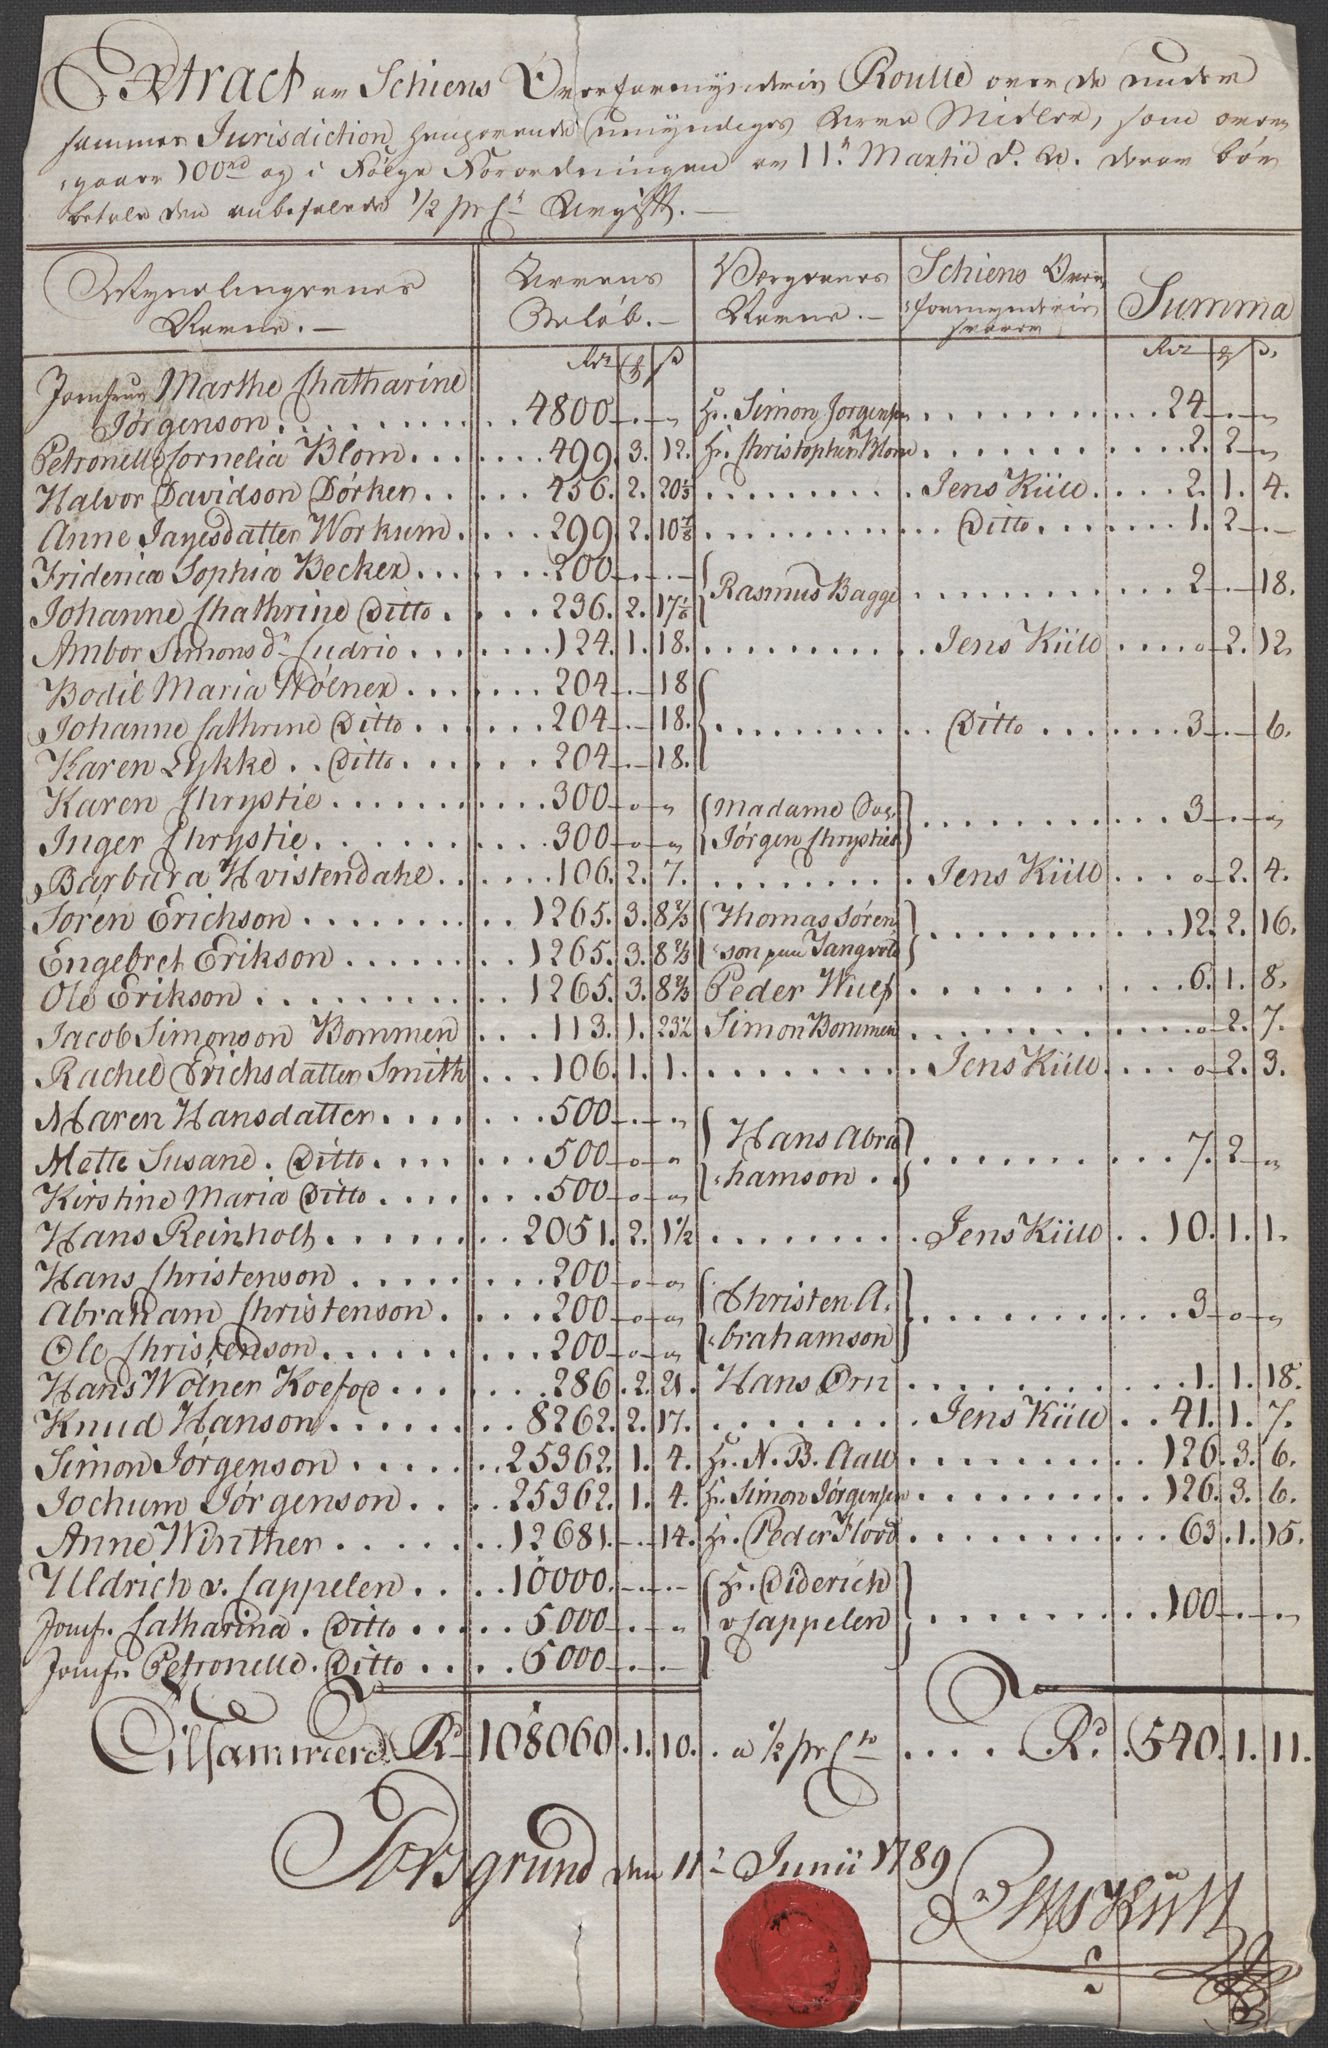 Extract av Schiens Overformynderie Roulle over de under
sammes Jurisdiction henhørende umyndiges Arve Midler, som over
gaaer 100rd og i Følge Forordningen av 11te Martii d. A. derav bør
betale den anbefalede 1/2 pr Ct Avgift. —
Myndlingernes Navne. — Arvens Beløb. — Værgernes Navne. — Schiens Over formynderie svarer Summa
Rdr ß Rdr ß
Jomfrue Marthe Chatharine
Jørgenson . . . 4800 — . — „ Hr. Simon Jørgensen . . . 24 — . — „
Petronelle Cornelia Blom . . . 499. 3. 12. Hr. Christopher Blom . . . 2. 2 — „
Halvor Davidson Børker . . . 456. 2. 20 1/3 . . . Jens Kiill . . . 2. 1. 4.
Anne Jansdatter Workum . . . 299. 2. 10 7/8 . . . Ditto . . . 1. 2 — . —
Friderica Sophia Becker . . . 200 — . — . —
Rasmus Bagge . . . 2 — . — 18.
Johanne Chathrine Ditto . . . 236. 2. 17 1/2
Ambor Simonsdr Ludrio . . . 124. 1. 18. . . . Jens Kiill . . . o — 2. 12.
Bodil Maria Wölner . . . 204 — . — 18
Johanne Cathrine Ditto . . . 204 — . — 18. . . . Ditto . . . 3 — . — 6.
Karen Lykke . . Ditto . . . 204 — . — 18.
Karen Chrystie . . . 300 — o — „ Madame Sal.
3 — . — „
Inger Chrystie . . . 300 — o — „ Jørgen Chrysties
Barbara Hvistendahl . . . 106. 2. 7. . . . Jens Kiill . . . o — 2. 4.
Søren Erichson . . . 1265. 3. 8 2/3 Thomas Søren . . . 12. 2. 16.
Engebret Erikson . . . 1265. 3. 8 2/3 son paa Tangvold
Ole Erikson . . . 1265. 3. 8 2/3 Peder Wulf . . . 6. 1. 8.
Jacob Simonson Bommen . . . 113. 1. 23 1/2 Simon Bommen . . . o — 2. 7.
Rachel Erichsdatter Smith . . . 106. 1. 1. . . . Jens Kiill . . . o — 2. 3.
Maren Hansdatter . . . 500 — . — „
Hans Abra
Mette Susane . Ditto . . . 500 — o — „ . . . 7. 2 — „
hamson . .
Kirstine Maria Ditto . . . 500 — o — „
Hans Reinholt . . . 2051. 2. 1 1/2 . . . Jens Kiill . . 10. 1. 1.
Hans Christenson . . . 200 — o — „
Christen A-
Abraham Christenson . . . 200 — o — „ . . . 3 — o — „
brahamson
Ole Christenson . . . 200 — o — „
Hans Wölner Koefod . . . 286. 2. 21. Hans Ørn . . . 1. 1. 18.
Knud Hanson . . . 8262. 2. 17. . . . Jens Kiill . . 41. 1. 7.
Simon Jørgenson . . . 25362. 1. 4. Hr. N. B. Aall . . . 126. 3. 6.
Jochum Jørgenson . . . 25362. 1. 4. Hr. Simon Jørgensen . . . 126. 3. 6.
Anne Winther . . . 12681. — . — 14. Hr. Peder Flood . . . 63. 1. 15.
Uldrich v. Cappelen . . . 10000. — . — . — Hr. Diderich
Jomf. Catharina . Ditto . . . 5000 — . — „ v Cappelen . . . 100 — . — . — „
Jomfr. Petronelle . Ditto . . . 5000 — . — . —
Tilsammend Rd 108060. 1. 10. . a 1/2 pr Cto . . . Rd. . 540. 1. 11.
Porsgrund den 11te Junii 1789
Jens Kiill